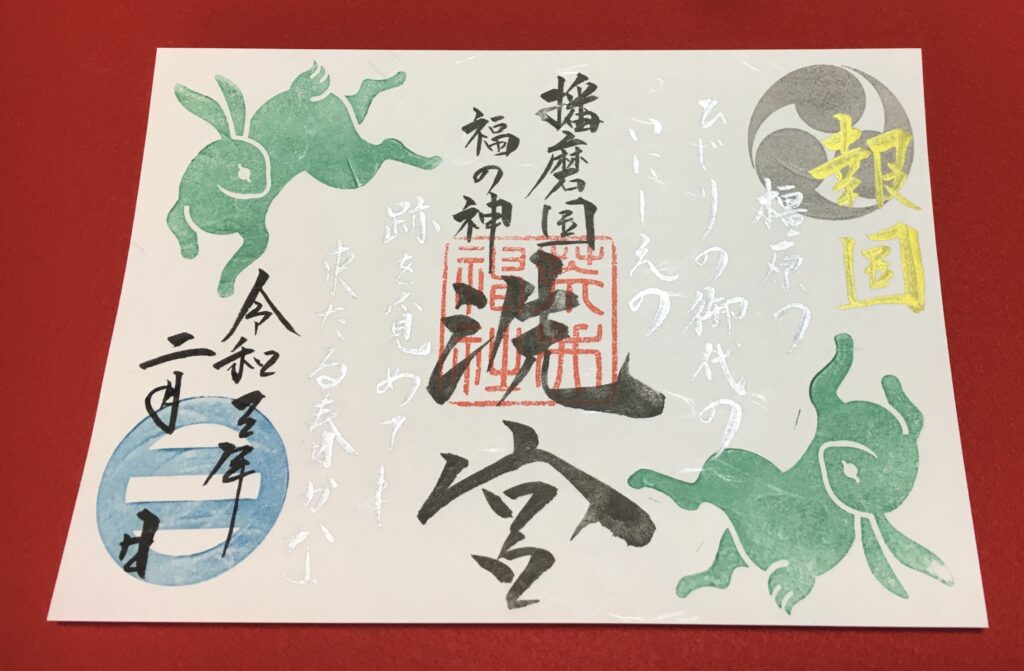 報国
橿原の
ひじりの御代の
いにしえの
播磨国
福の神
洗宮
荒井神社
跡を覓めてし
来たる春かな
令和三年
二月 日